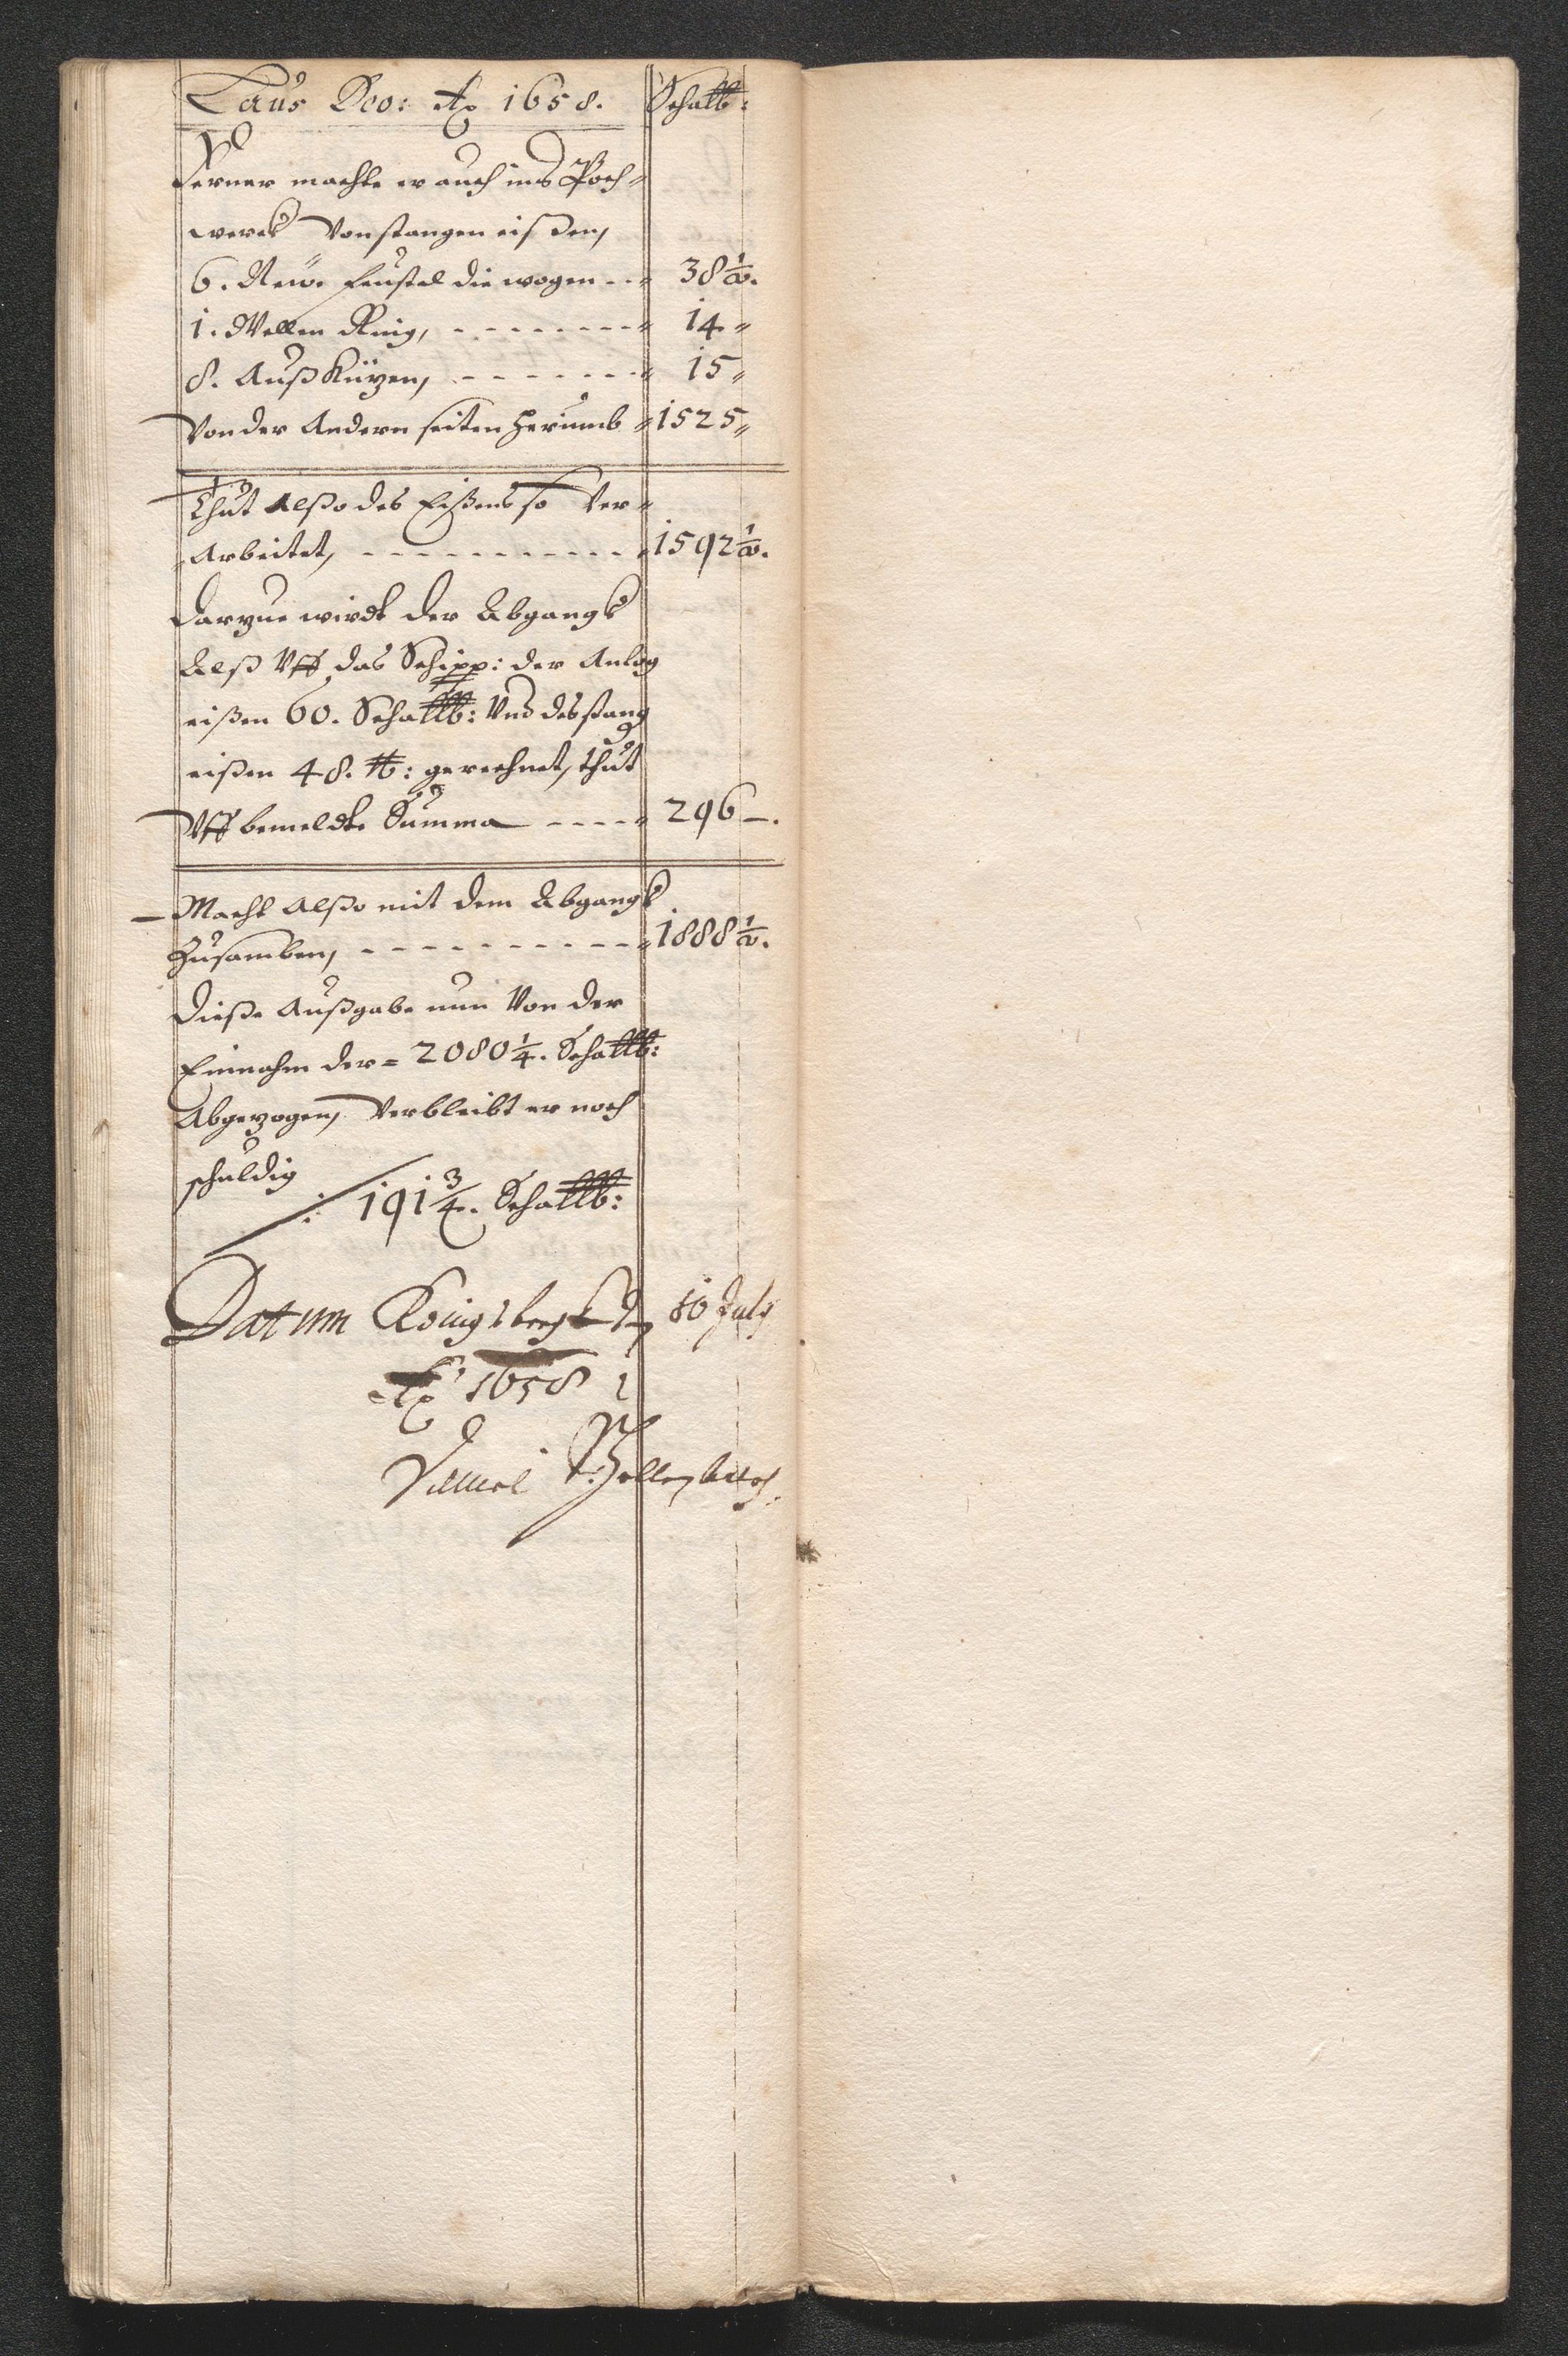 Laus Deo: Ao 1658. Schalb:
Ferner machte er auch ins Poch-
werck Von stangen eißen,
6. New. feustel die wogen - - 38 1/2.
1. Wellen Ring, - - - - - - - - 14 "
8. Auß Kützen, - - - - - - - 15 "
Von der Andern seiten herumb 1525 "
Thut Alßo des Eißens so Ver-
Arbeitet, - - - - - - - - - - - 1592 1/2.
Darzue wirdt der Abgangk
Alß Vff das Schipp: der Anlag
eißen 60. Schalb: Vnd des stang
eißen 48. ℔: gerechnet, thut
Vff bemeldte Summa - - - - 296 –.
Macht Alßo mit dem Abgangk
Zusamben, - - - - - - - - - - 1888 1/2.
Dieße Außgabe nun Von der
Einnahm der = 2080 1/4. Schalb:
Abgezogen, Verbleibt er noch
schuldig
191 3/4. Schalb:
Datum Konigsbergk den 10 July
Ao 1658